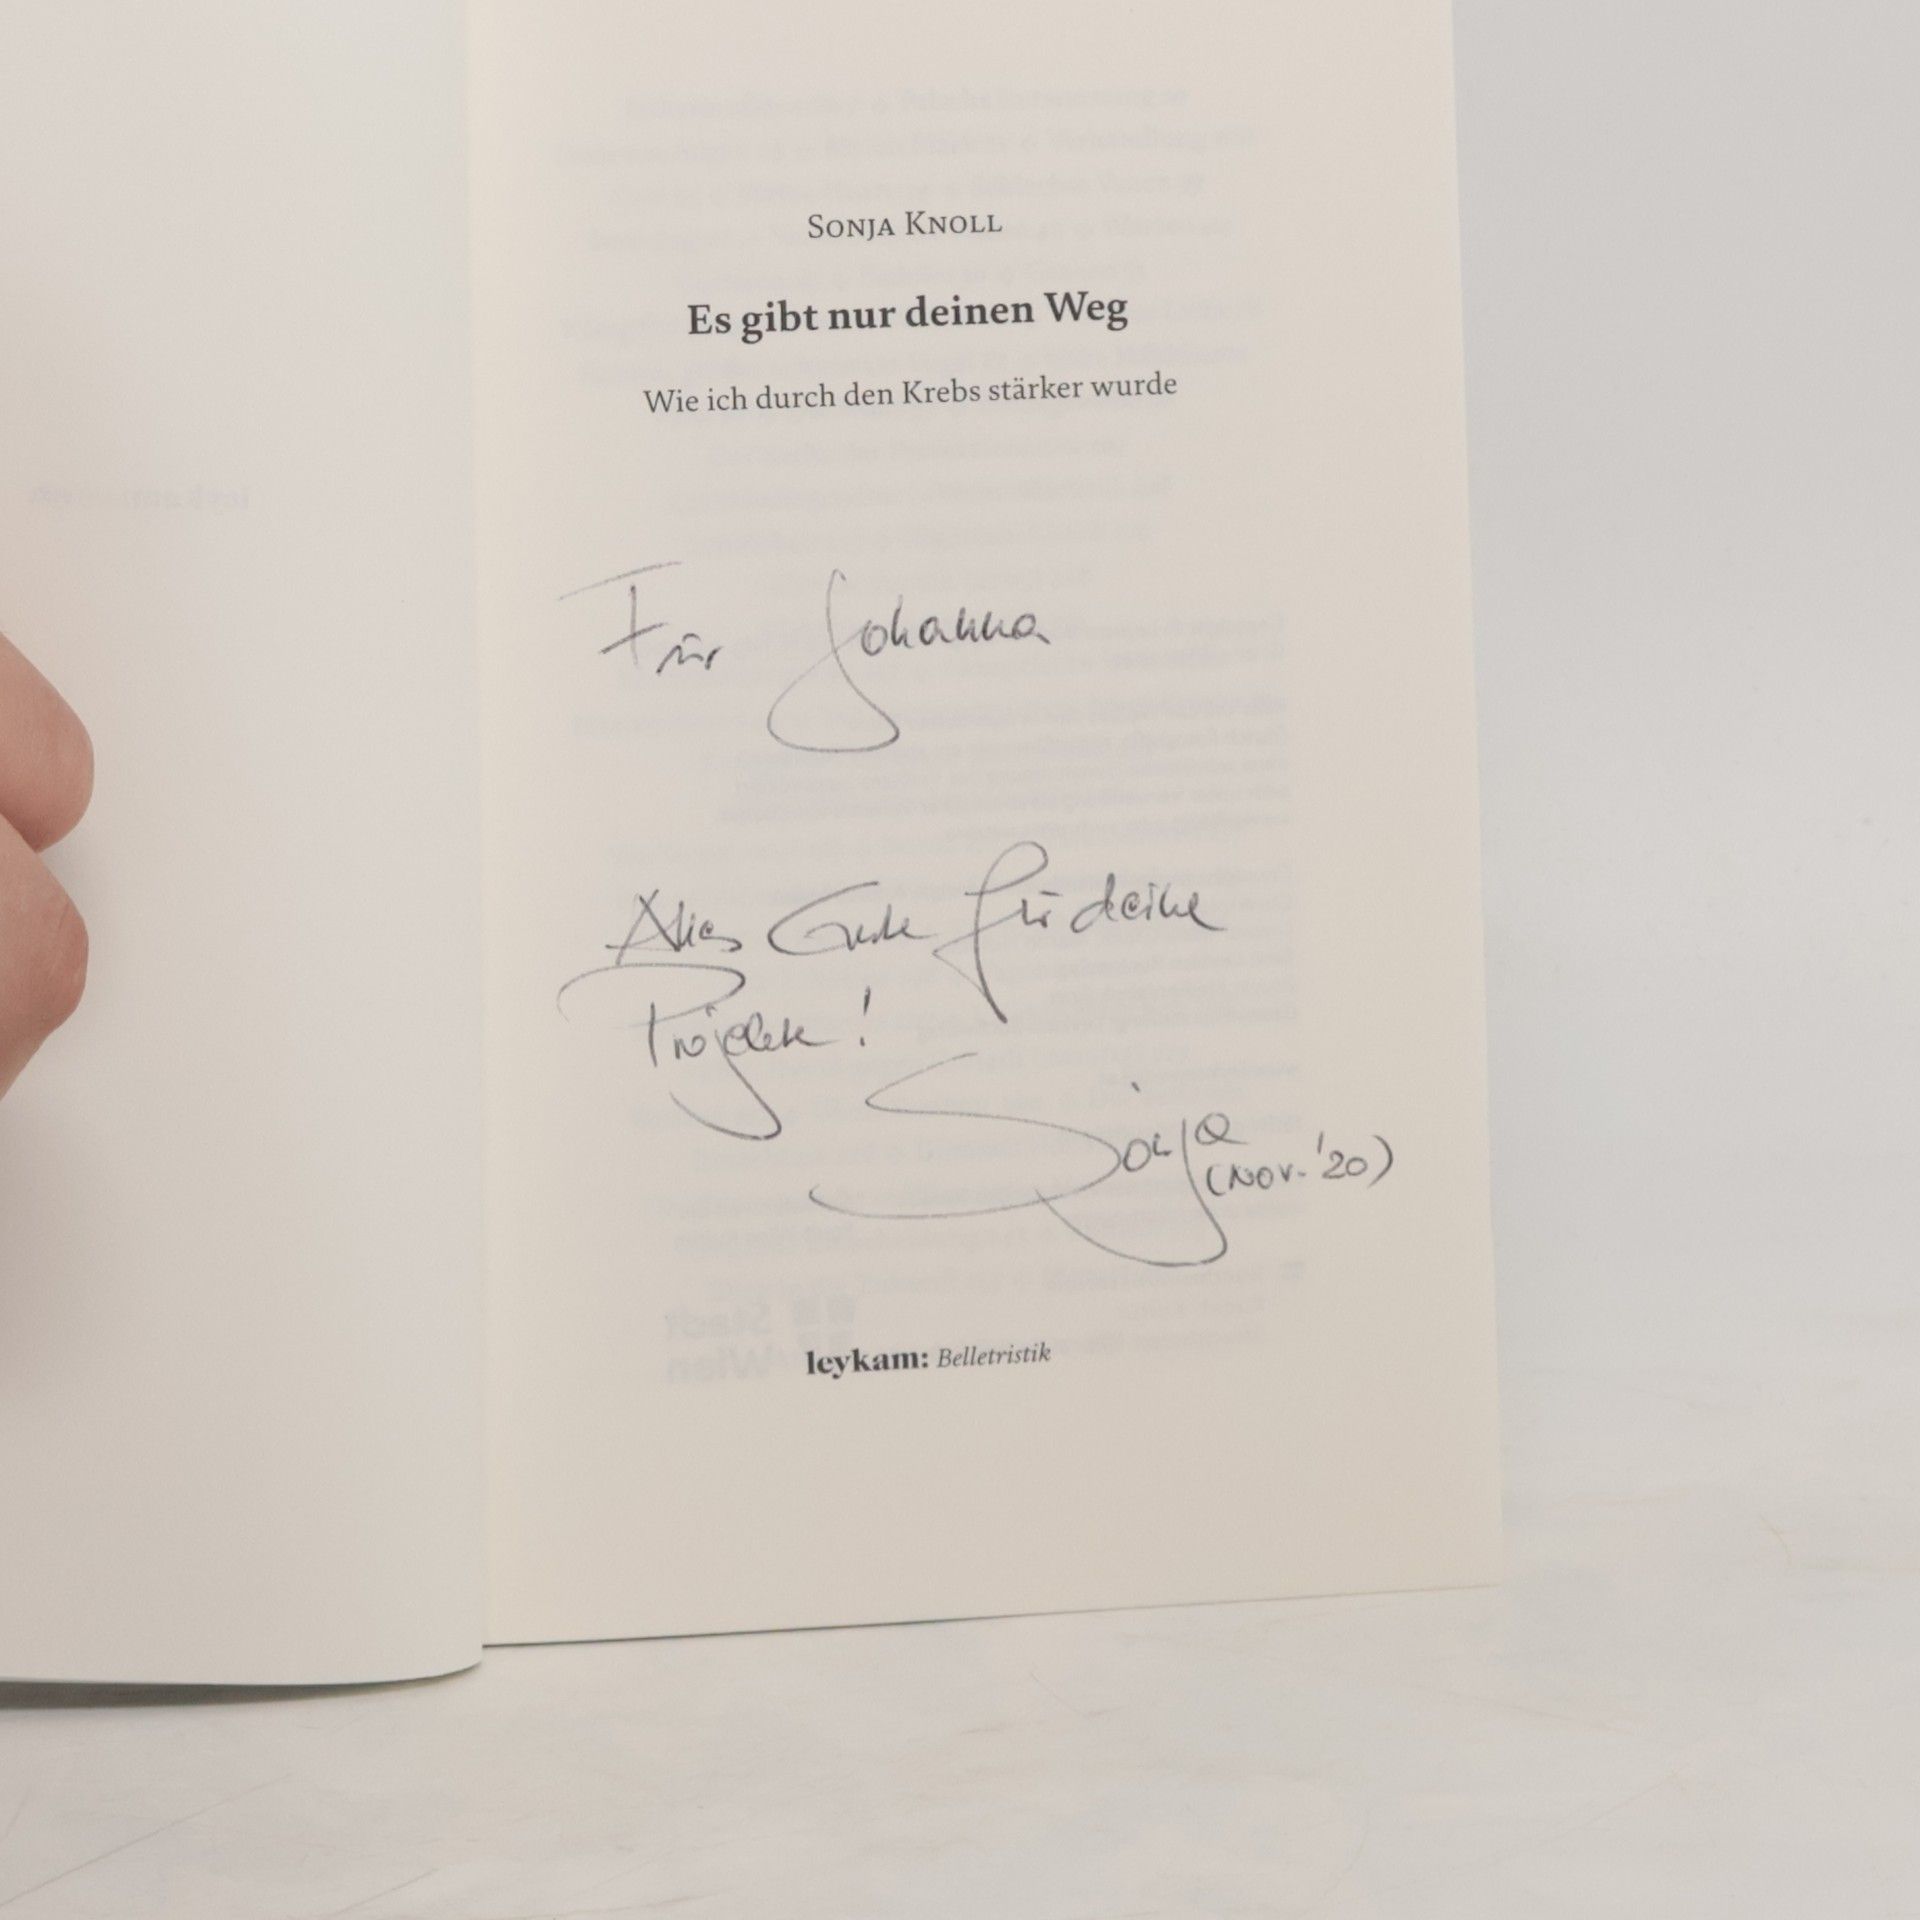 SONJA KNOLL
Es gibt nur deinen Weg
Wie ich durch den Krebs stärker wurde
Für Johanna
Alles Gute für deine
Projekte!
Sonja
(Nov. '20)
leykam: Belletristik
Stadt
Wien